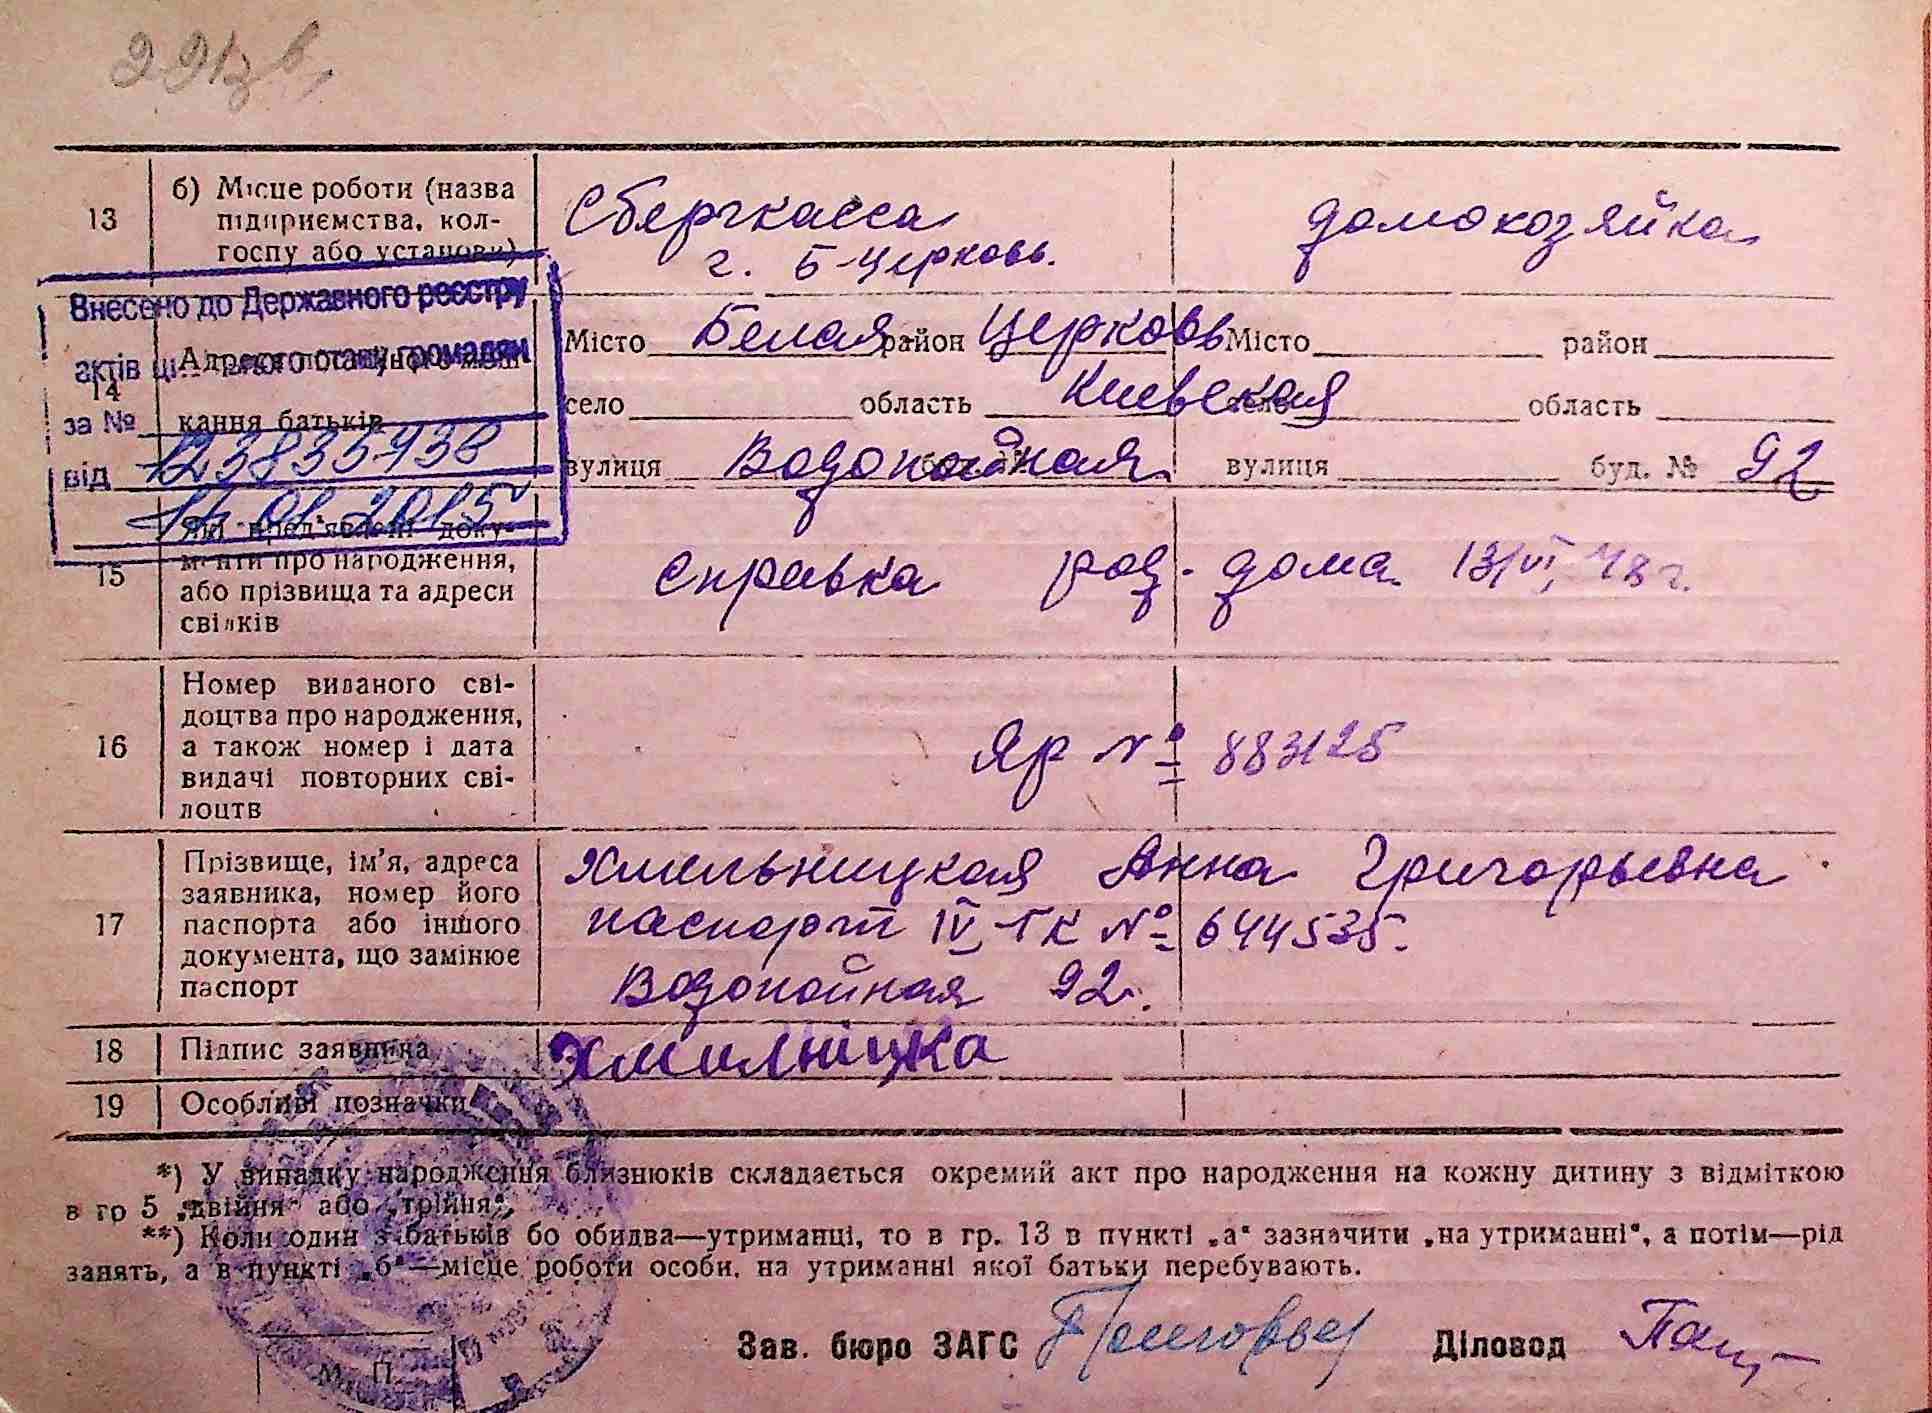 13
б) Місце роботи (назва
підприємства, кол-
госпу або установи)
Сберчкасса
г. Б-Церковь.
домохозяйка
Внесено до Державного реєстру
актів цивільного стану громадян
за № 12383593
від 14.01.2015
14
Адреса постійного меш-
кання батьків
Місто Белая район Церковь Місто район
село область Киевская село область
вулиця Водопойная буд. № вулиця буд. № 92
15
Які пред'явлені доку-
менти про народження,
або прізвища та адреси
свідків
справка род. дома 13/VI, 48 г.
16
Номер виданого сві-
доцтва про народження,
а також номер і дата
видачі повторних сві-
доцтв
Яр № 883125
17
Прізвище, ім'я, адреса
заявника, номер його
паспорта або іншого
документа, що замінює
паспорт
Хмельницкая Анна Григорьевна
паспорт IV-ГК № 644535.
Водопойная 92.
18 Підпис заявника Хмилніцка
19 Особливі позначки
*) У випадку народження близнюків складається окремий акт про народження на кожну дитину з відміткою
в гр 5 „двійня" або „трійня".
**) Коли один з батьків бо обидва—утриманці, то в гр. 13 в пункті „а" зазначити „на утриманні", а потім—рід
занять, а в пункті „б"—місце роботи особи, на утриманні якої батьки перебувають.
Зав. бюро ЗАГС Діловод
М. П.